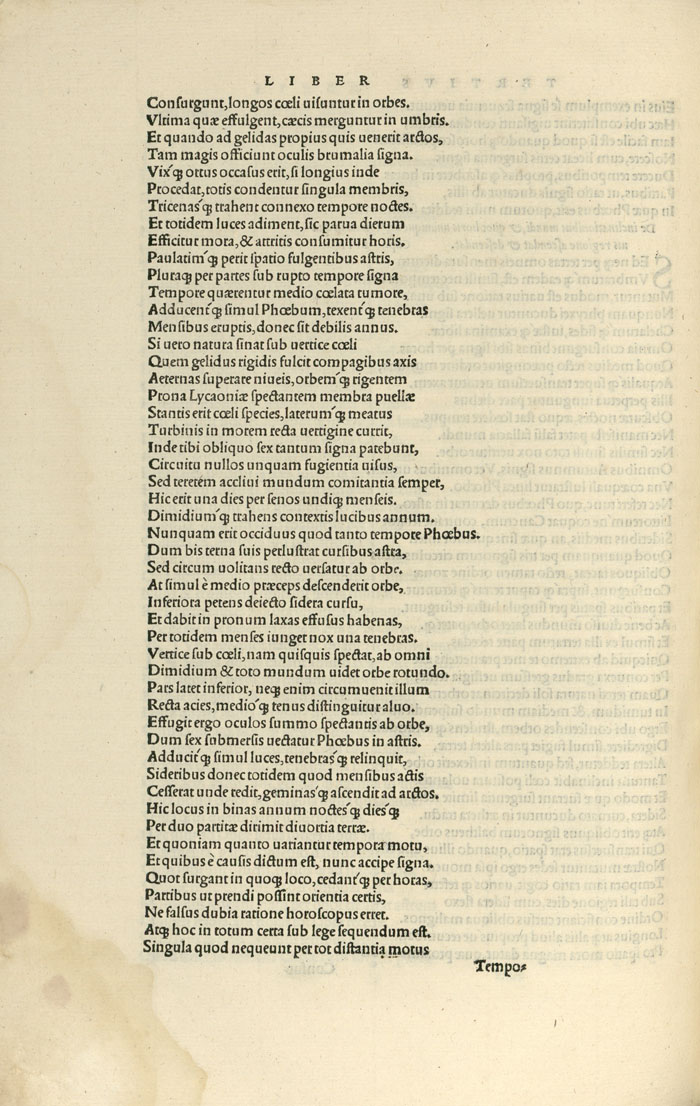 LIBER
Conſurgunt,longos cœli uiſuntur in orbes.
Vltima quæ effulgent,cæcis merguntur in umbris.
Et quando ad gelidas propius quis uenerit arctos,
Tam magis officiunt oculis brumalia ſigna.
Vixq́ꝫ ortus occaſus erit,ſi longius inde
Procedat,totis condentur ſingula membris,
Tricenasq́ꝫ trahent connexo tempore noctes.
Et totidem luces adiment,ſic parua dierum
Efficitur mora,& attritis conſumitur horis.
Paulatimq́ꝫ perit ſpatio fulgentibus aſtris,
Pluraqꝫ per partes ſub rupto tempore ſigna
Tempore quærentur medio cœlata tumore,
Adducentq́ꝫ ſimul Phœbum,texentq́ꝫ tenebras
Menſibus eruptis,donec ſit debilis annus.
Si uero natura ſinat ſub uertice cœli
Quem gelidus rigidis fulcit compagibus axis
Aeternas ſuperare niueis,orbemq́ꝫ rigentem
Prona Lycaoniæ ſpectantem membra puellæ
Stantis erit cœli ſpecies,laterumq́ꝫ meatus
Turbinis in morem recta uertigine currit,
Inde tibi obliquo ſex tantum ſigna patebunt,
Circuitu nullos unquam fugientia uiſus,
Sed teretém accliui mundum comitantia ſemper,
Hic erit una dies per ſenos undiqꝫ menſeis.
Dimidiumq́ꝫ trahens contextis lucibus annum.
Nunquam erit occiduus quod tanto tempore Phœbus.
Dum bis terna ſuis perluſtrat curſibus aſtra,
Sed circum uolitans recto uerſatur ab orbe.
At ſimul è medio præceps deſcenderit orbe,
Inferiora petens deiecto ſidera curſu,
Et dabit in pronum laxas effuſus habenas,
Per totidem menſes iunget nox una tenebras.
Vertice ſub cœli,nam quiſquis ſpectat,ab omni
Dimidium & toto mundum uidet orbe rotundo.
Pars latet inferior, neqꝫ enim circumuenit illum
Recta acies,medioq́ꝫ tenus diſtinguitur aluo.
Effugit ergo oculos ſummo ſpectantis ab orbe,
Dum ſex ſubmerſis uectatur Phœbus in aſtris.
Adducitq́ꝫ ſimul luces,tenebrasq́ꝫ relinquit,
Sideribus donec totidem quod menſibus actis
Ceſſerat unde redit,geminasq́ꝫ aſcendit ad arctos.
Hic locus in binas annum noctesq́ꝫ diesq́ꝫ
Per duo partitæ dirimit diuortia terræ.
Et quoniam quanto uariantur tempora motu,
Et quibus è cauſis dictum eſt, nunc accipe ſigna.
Quot ſurgant in quoqꝫ loco,cedantq́ꝫ per horas,
Partibus ut prendi poſſint orientia certis,
Ne falſus dubia ratione horoſcopus erret.
Atqꝫ hoc in totum certa ſub lege ſequendum eſt.
Singula quod nequeunt per tot diſtantia motus
Tempo⸗